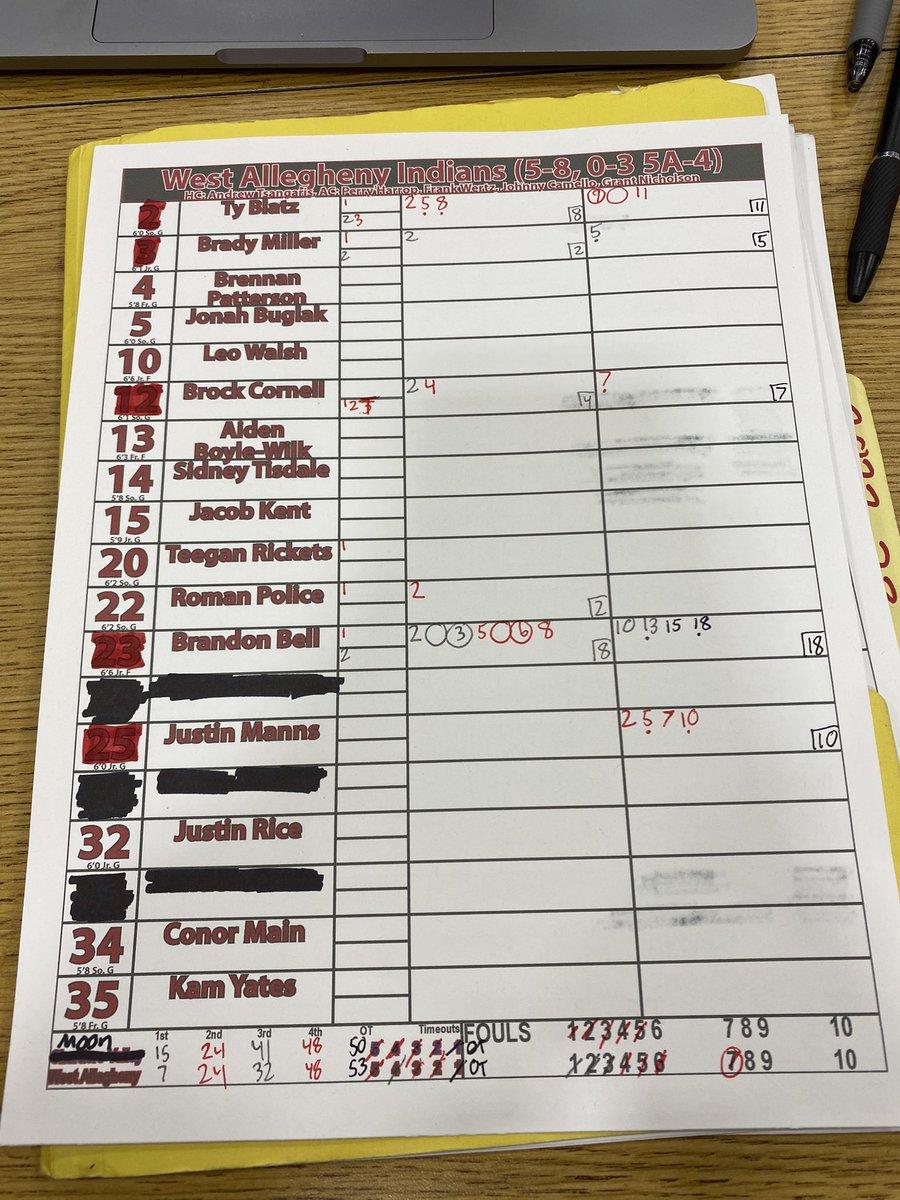 West Allegheny Indians (5-8, 0-3 5A-4)
HC: Andrew Tsangaris, AC: Perry Harrop, Frank Wertz, Johnny Camello, Grant Nicholson
2 Ty Blatz 1 2 5 8 9 11
6'0 So. G 2 3 8 11
3 Brady Miller 1 2 5
6'1 Jr. G 2 2 5
4 Brennan Patterson
5'8 Fr. G
5 Jonah Buglak
6'0 So. G
10 Leo Walsh
6'6 Jr. F
12 Brock Cornell 2 4 7
6'1 So. G 1 2 3 4 7
13 Aiden Boyle-Wilk
6'3 Fr. F
14 Sidney Tisdale
5'8 So. G
15 Jacob Kent
5'9 Jr. G
20 Teegan Rickets 1
6'2 So. G
22 Roman Police 1 2
6'2 So. G 2
23 Brandon Bell 1 2 3 5 6 8 10 13 15 18
6'6 Jr. F 2 8 18
25 Justin Manns 2 5 7 10
6'0 Jr. G 10
32 Justin Rice
6'0 Jr. G
34 Conor Main
5'8 So. G
35 Kam Yates
5'8 Fr. G
1st 2nd 3rd 4th OT Timeouts FOULS 1 2 3 4 5 6 7 8 9 10
Moon 15 24 41 48 50 5 4 3 2 1 OT
West Allegheny 7 24 32 48 53 5 4 3 2 1 OT 1 2 3 4 5 6 7 8 9 10